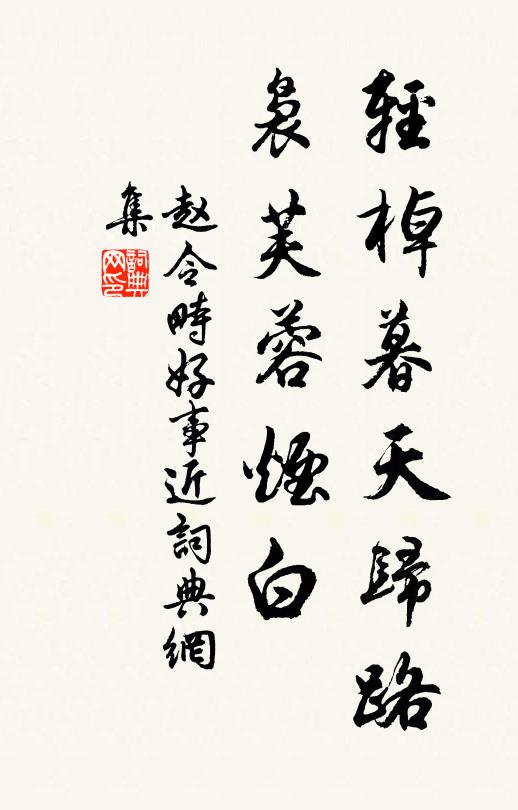 輕棹暮天歸路
裊芙蓉煙白
赵令畤好事近詞典網
集
詞典网印